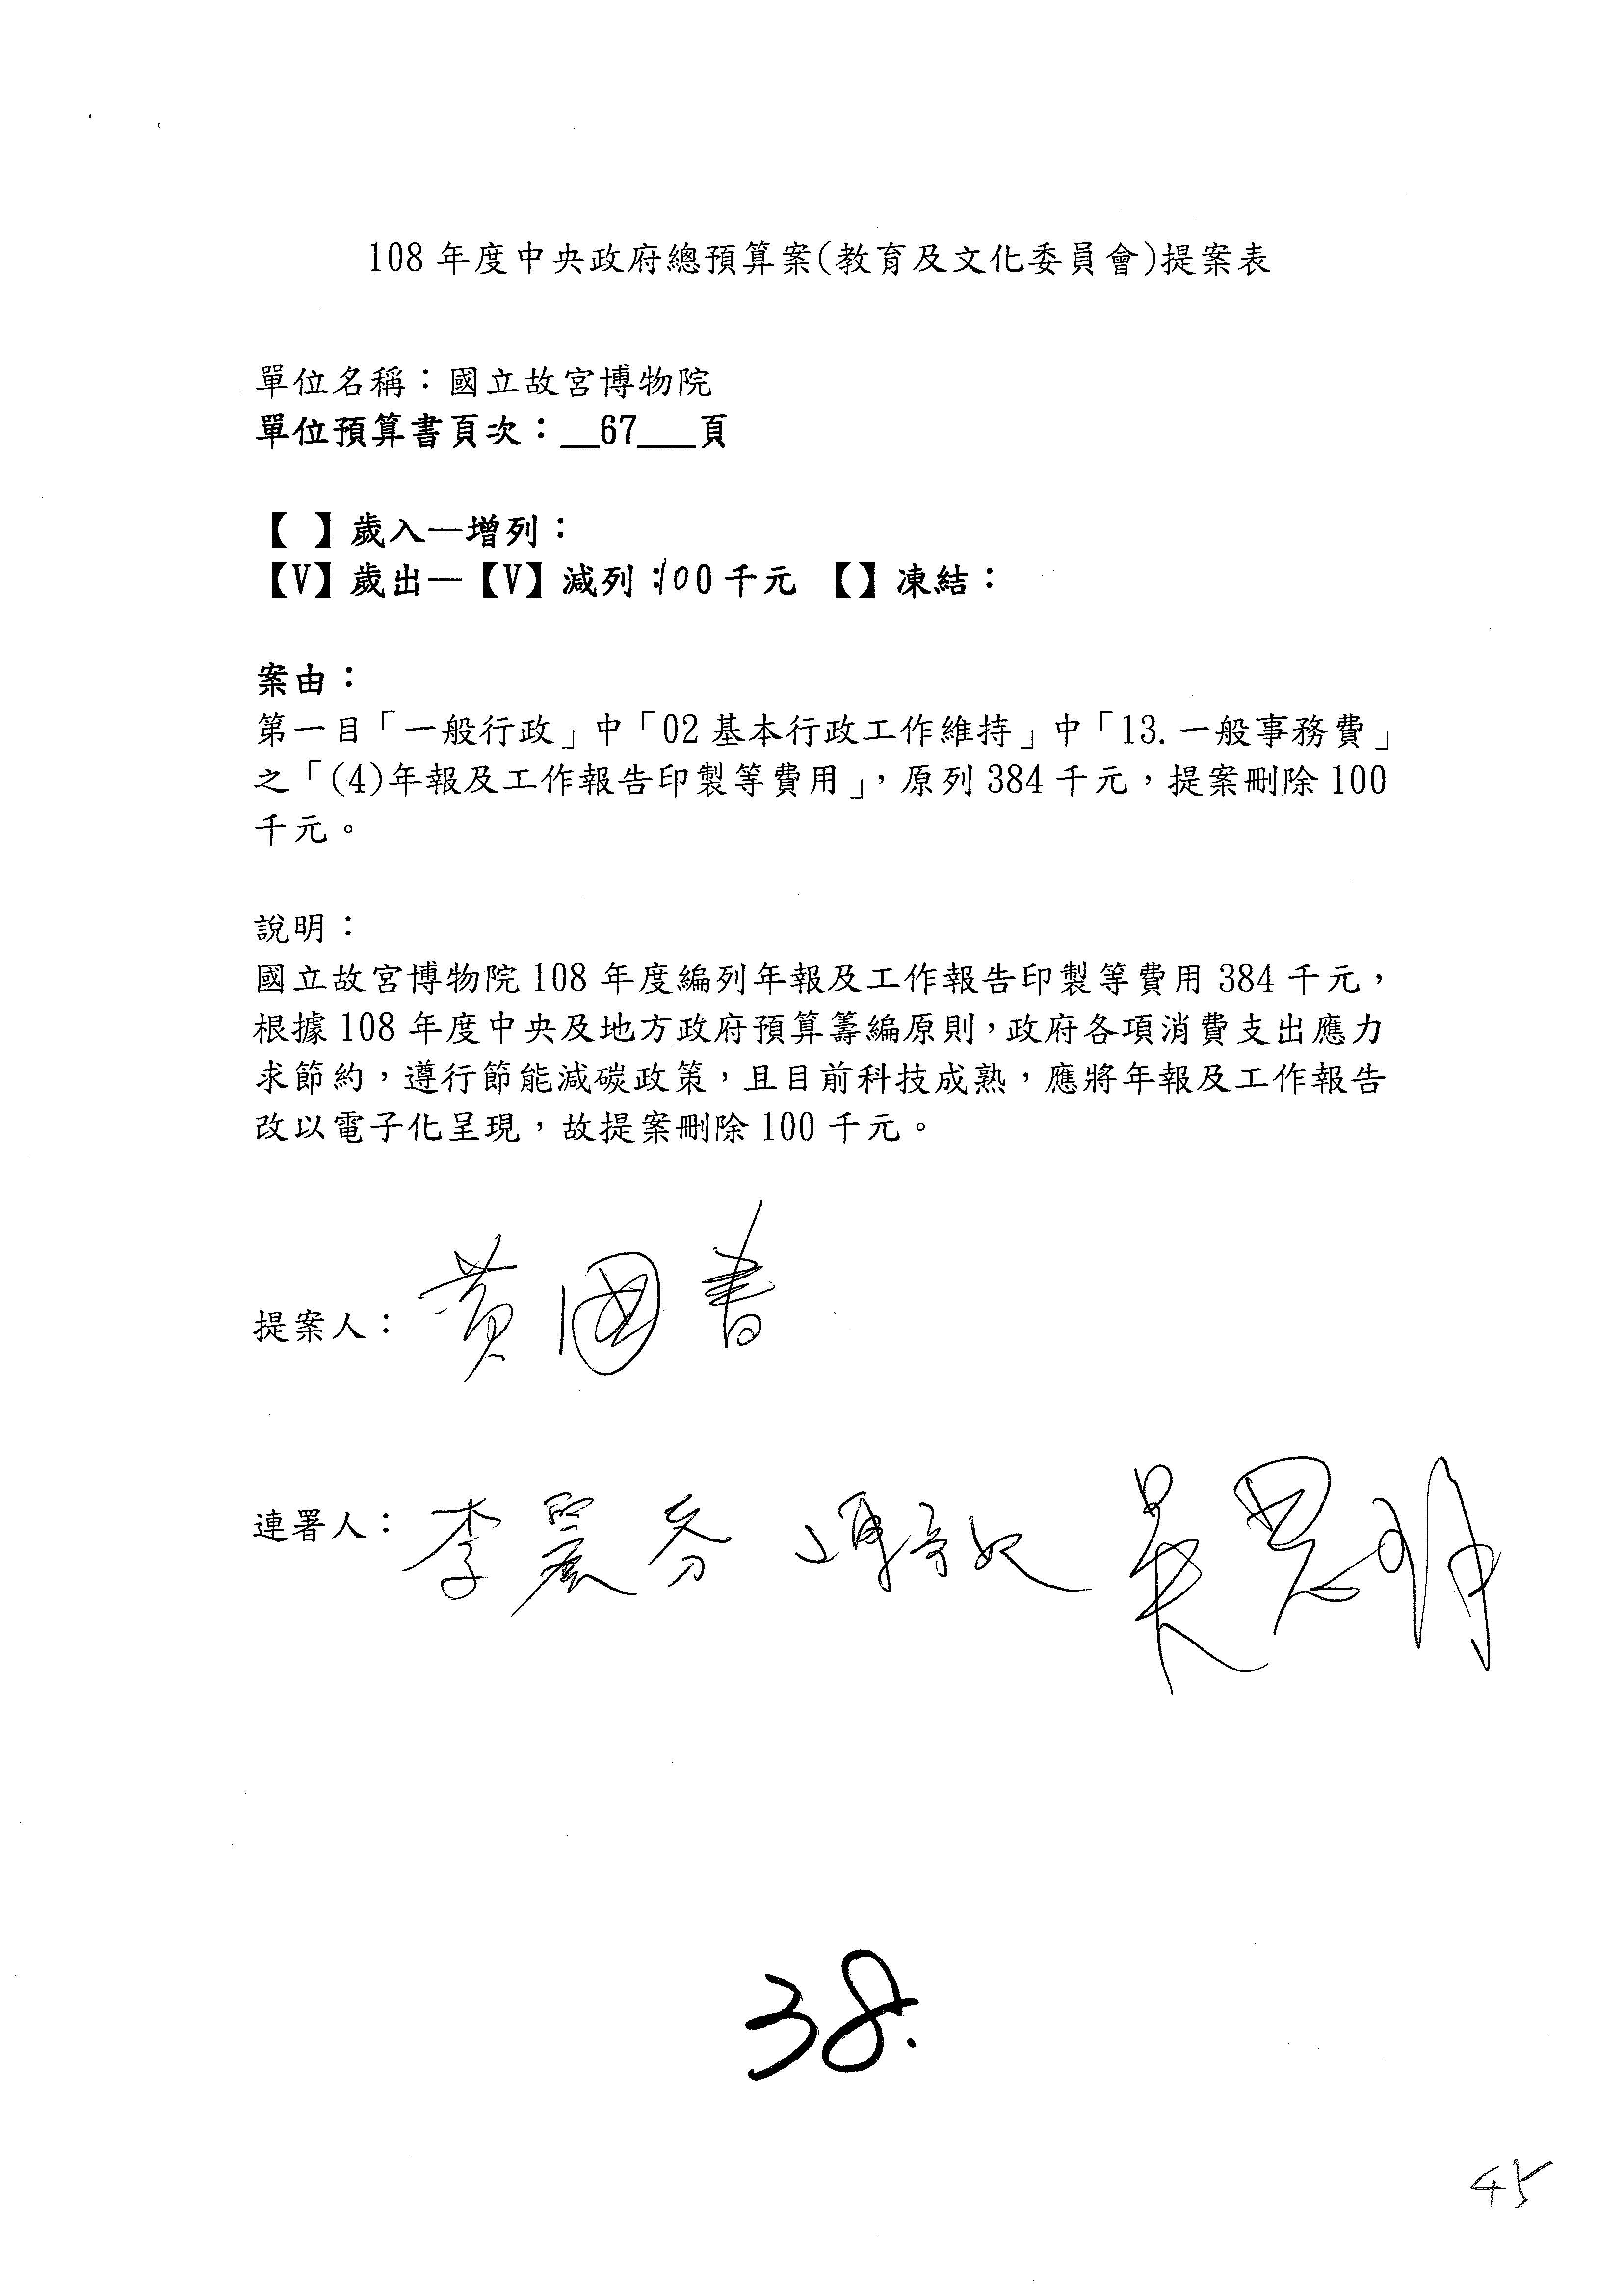 108年度中央政府總預算案(教育及文化委員會)提案表
單位名稱：國立故宮博物院
單位預算書頁次：__67___頁
【 】歲入—增列：
【V】歲出—【V】減列：100千元 【】凍結：
案由：
第一目「一般行政」中「02基本行政工作維持」中「13.一般事務費」
之「(4)年報及工作報告印製等費用」，原列384千元，提案刪除100
千元。
說明：
國立故宮博物院108年度編列年報及工作報告印製等費用384千元，
根據108年度中央及地方政府預算籌編原則，政府各項消費支出應力
求節約，遵行節能減碳政策，且目前科技成熟，應將年報及工作報告
改以電子化呈現，故提案刪除100千元。
提案人：黃國書
連署人：李麗芬 吳思瑤
38.
45